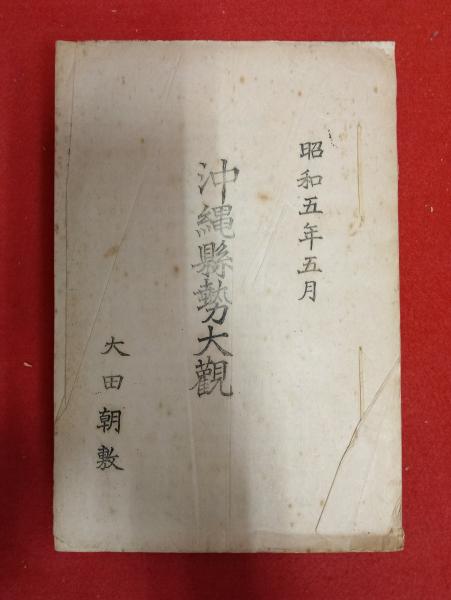 昭和五年五月
沖縄縣勢大觀
大田朝敷